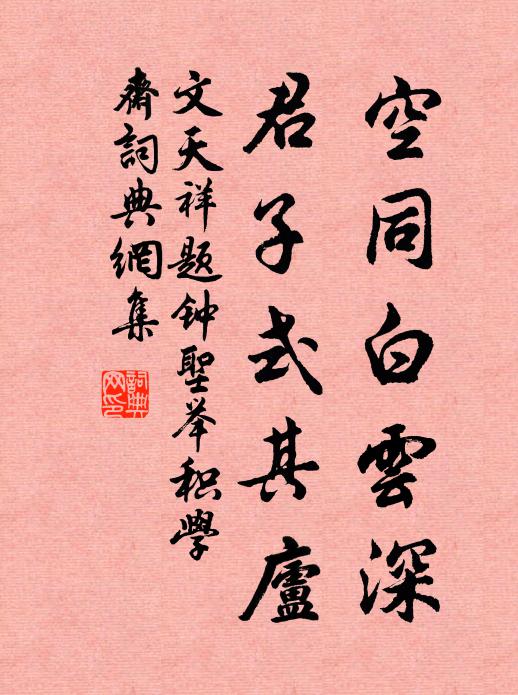 空同白雲深
君子式其廬
文天祥题钟聖举积學
齋詞典網集
詞典
网印